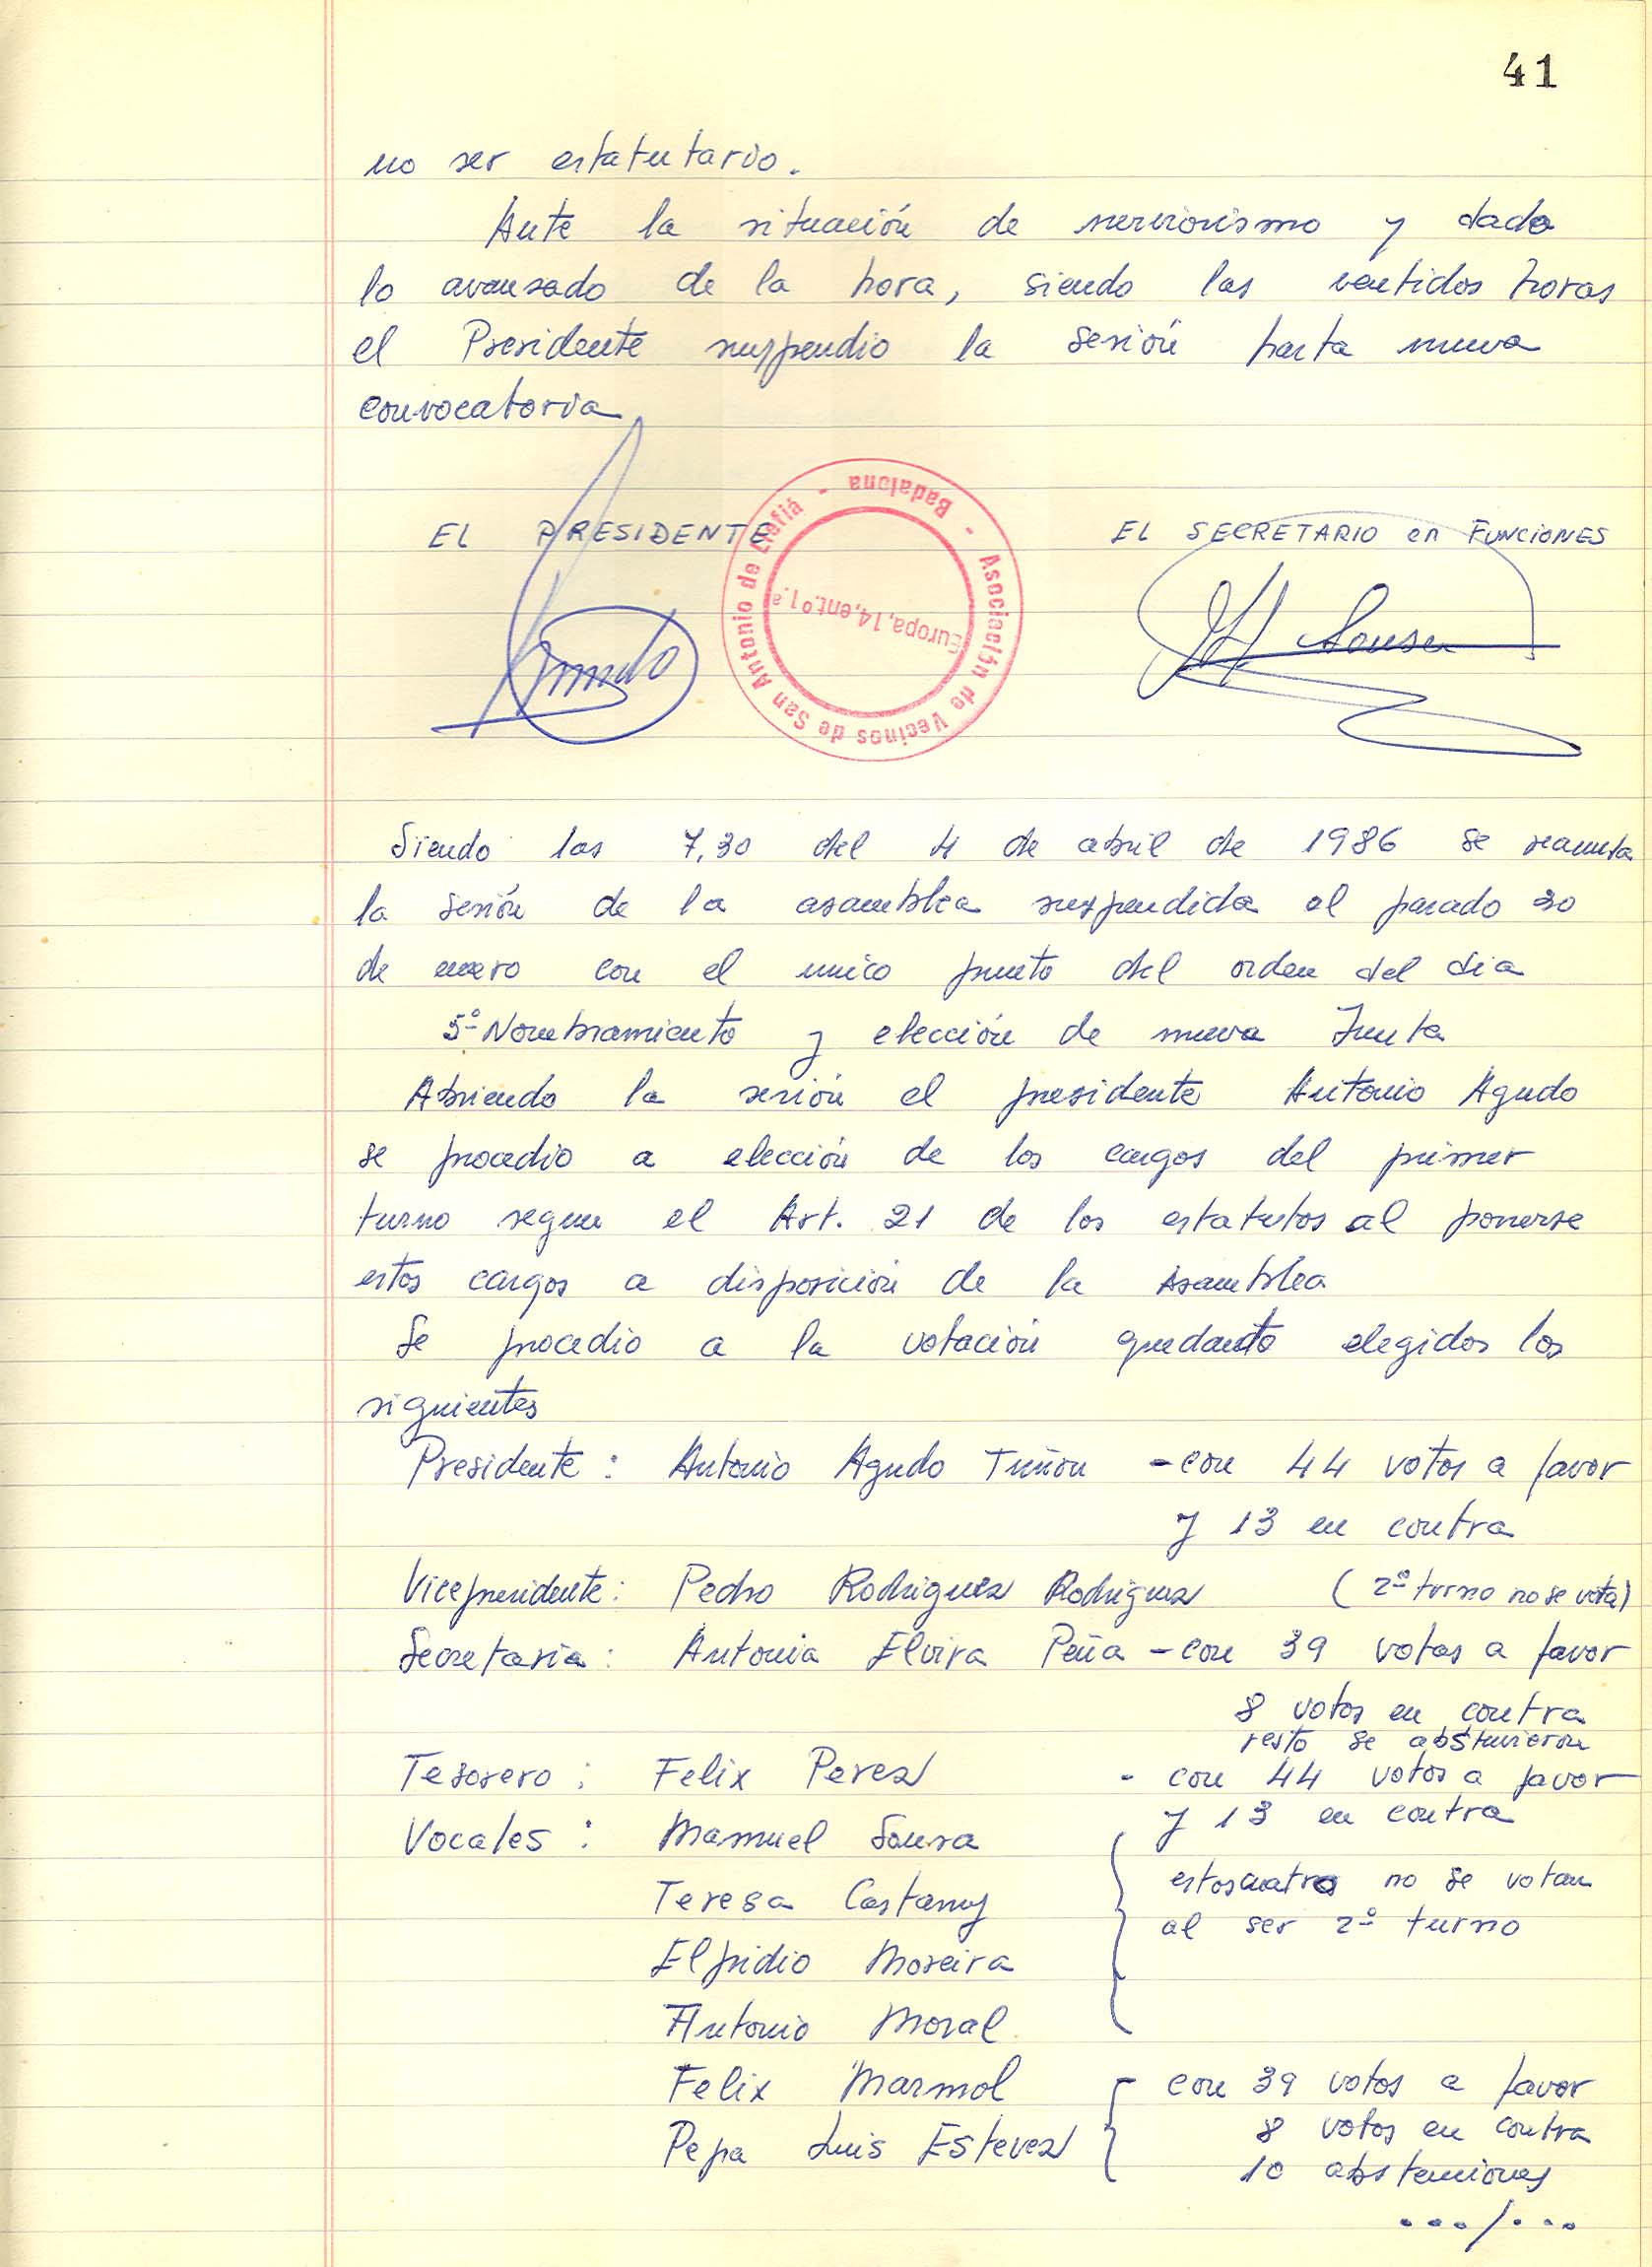 41
no ser estatutario.
Ante la situación de nerviosismo y dado
lo avansado de la hora, siendo las ventidos horas
el Presidente suspendio la sesión hasta nueva
convocatoria
EL PRESIDENTE
EL SECRETARIO en FUNCIONES
Asociación de Vecinos de San Antonio de Llefiá - Badalona -
Europa, 14, ent.º 1.ª
Sousa
Siendo las 7,30 del 4 de abril de 1986 se reanuda
la sesión de la asamblea suspendida el pasado 30
de enero con el unico punto del orden del dia
5º Nombramiento y elección de nueva Junta
Abriendo la sesión el presidente Antonio Agudo
se procedio a elección de los cargos del primer
turno segun el Art. 21 de los estatutos al ponerse
estos cargos a disposición de la Asamblea
Se procedio a la votación quedanto elegidos los
siguientes
Presidente: Antonio Agudo Tuñon - con 44 votos a favor
y 13 en contra
Vicepresidente: Pedro Rodriguez Rodriguez (2º turno no se vota)
Secretaria: Antonia Elvira Peña - con 39 votos a favor
8 votos en contra
resto se abstuvieron
Tesorero: Felix Perez - con 44 votos a favor
y 13 en contra
Vocales: Manuel Sousa
Teresa Castany
Elpidio Moreira
Antonio Moral
estos cuatro no se votan
al ser 2º turno
Felix Marmol
Pepa Luis Estevez
con 39 votos a favor
8 votos en contra
10 abstenciones
.../...